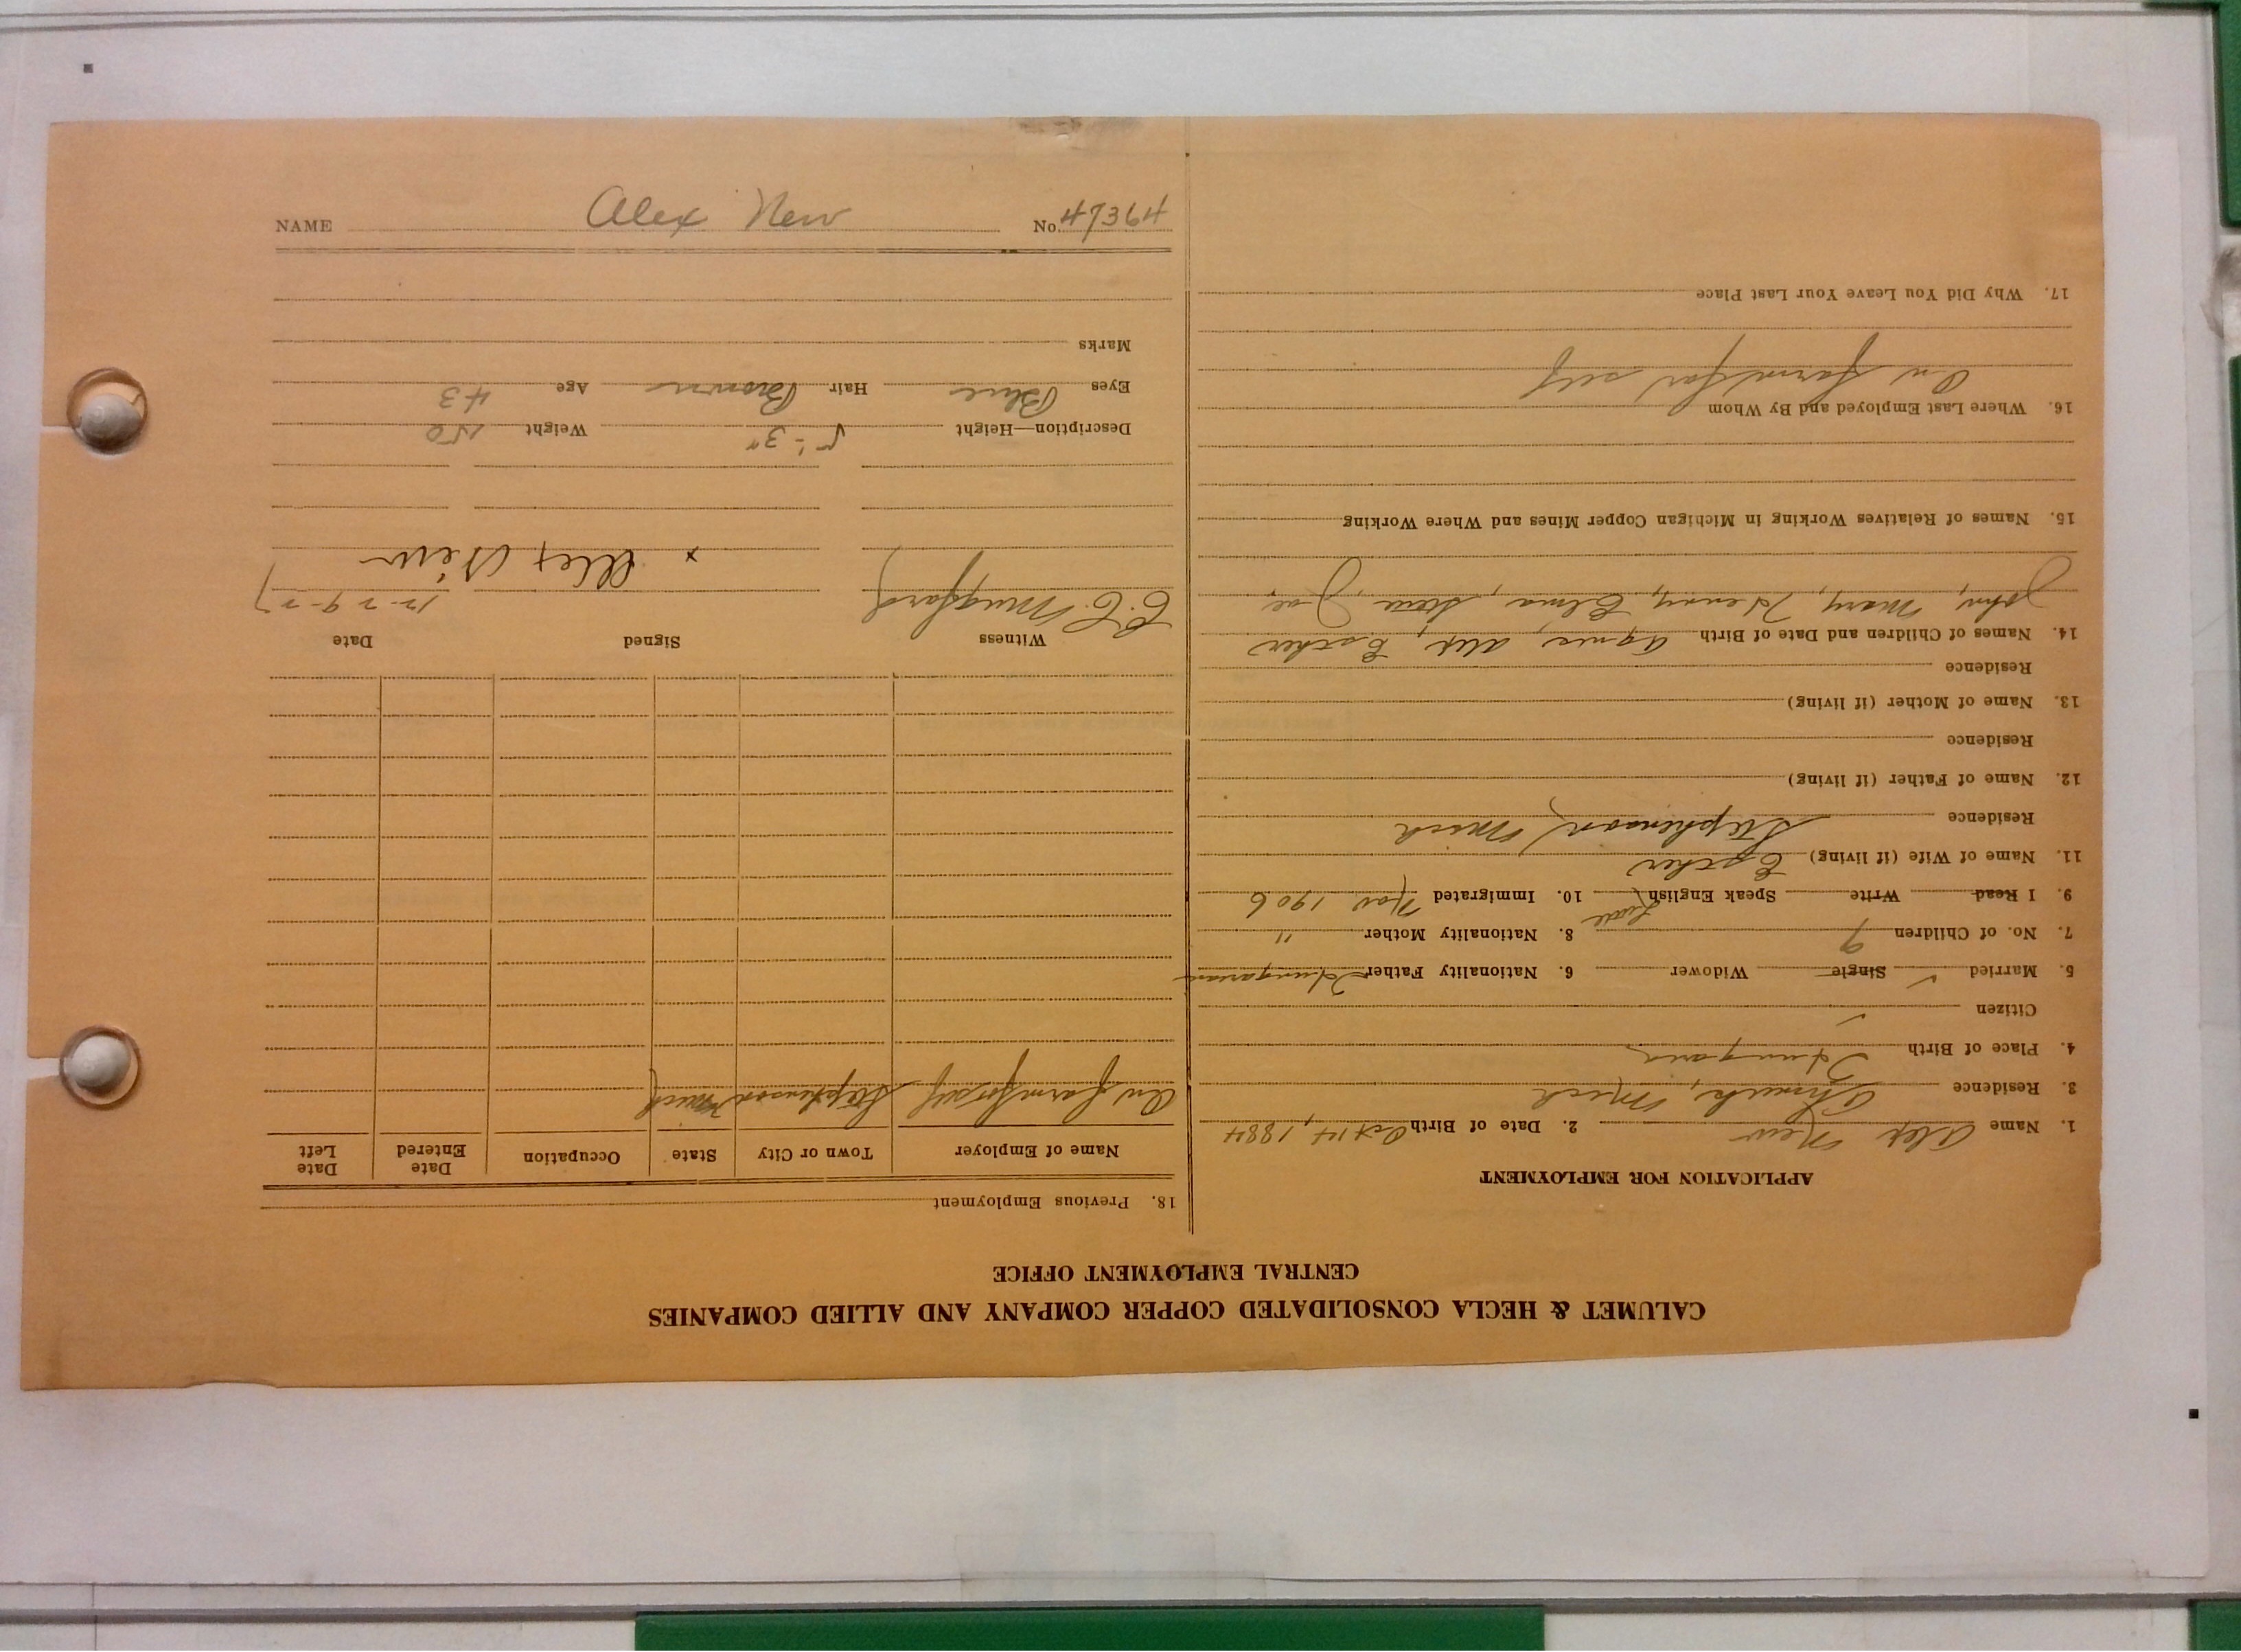 NAME Alex New No. 47364
CALUMET & HECLA CONSOLIDATED COPPER COMPANY AND ALLIED COMPANIES
CENTRAL EMPLOYMENT OFFICE
APPLICATION FOR EMPLOYMENT
1. Name Alex New 2. Date of Birth Oct 14, 1884
3. Residence Ahmeek, Mich
4. Place of Birth Hungary
Citizen ✓
5. Married ✓ Single Widower 6. Nationality Father Hungarian
7. No. of Children 9 8. Nationality Mother "
9. I Read Write Speak English 10. Immigrated Nov 1906
11. Name of Wife (if living) Esther
Residence Stephenson, Mich
12. Name of Father (if living)
Residence
13. Name of Mother (if living)
Residence
14. Names of Children and Date of Birth Agnes, Alex, Esther
John, Mary, Henry, Elma, Steve, Joe,
15. Names of Relatives Working in Michigan Copper Mines and Where Working
16. Where Last Employed and By Whom
On farm for self
17. Why Did You Leave Your Last Place
18. Previous Employment
Name of Employer Town or City State Occupation Date Entered Date Left
On farm for self Stephenson Mich
Witness Signed Date
C. C. Mugford x Alex New 12-29-27
Description—Height 5'-3" Weight 150
Eyes Blue Hair Brown Age 43
Marks